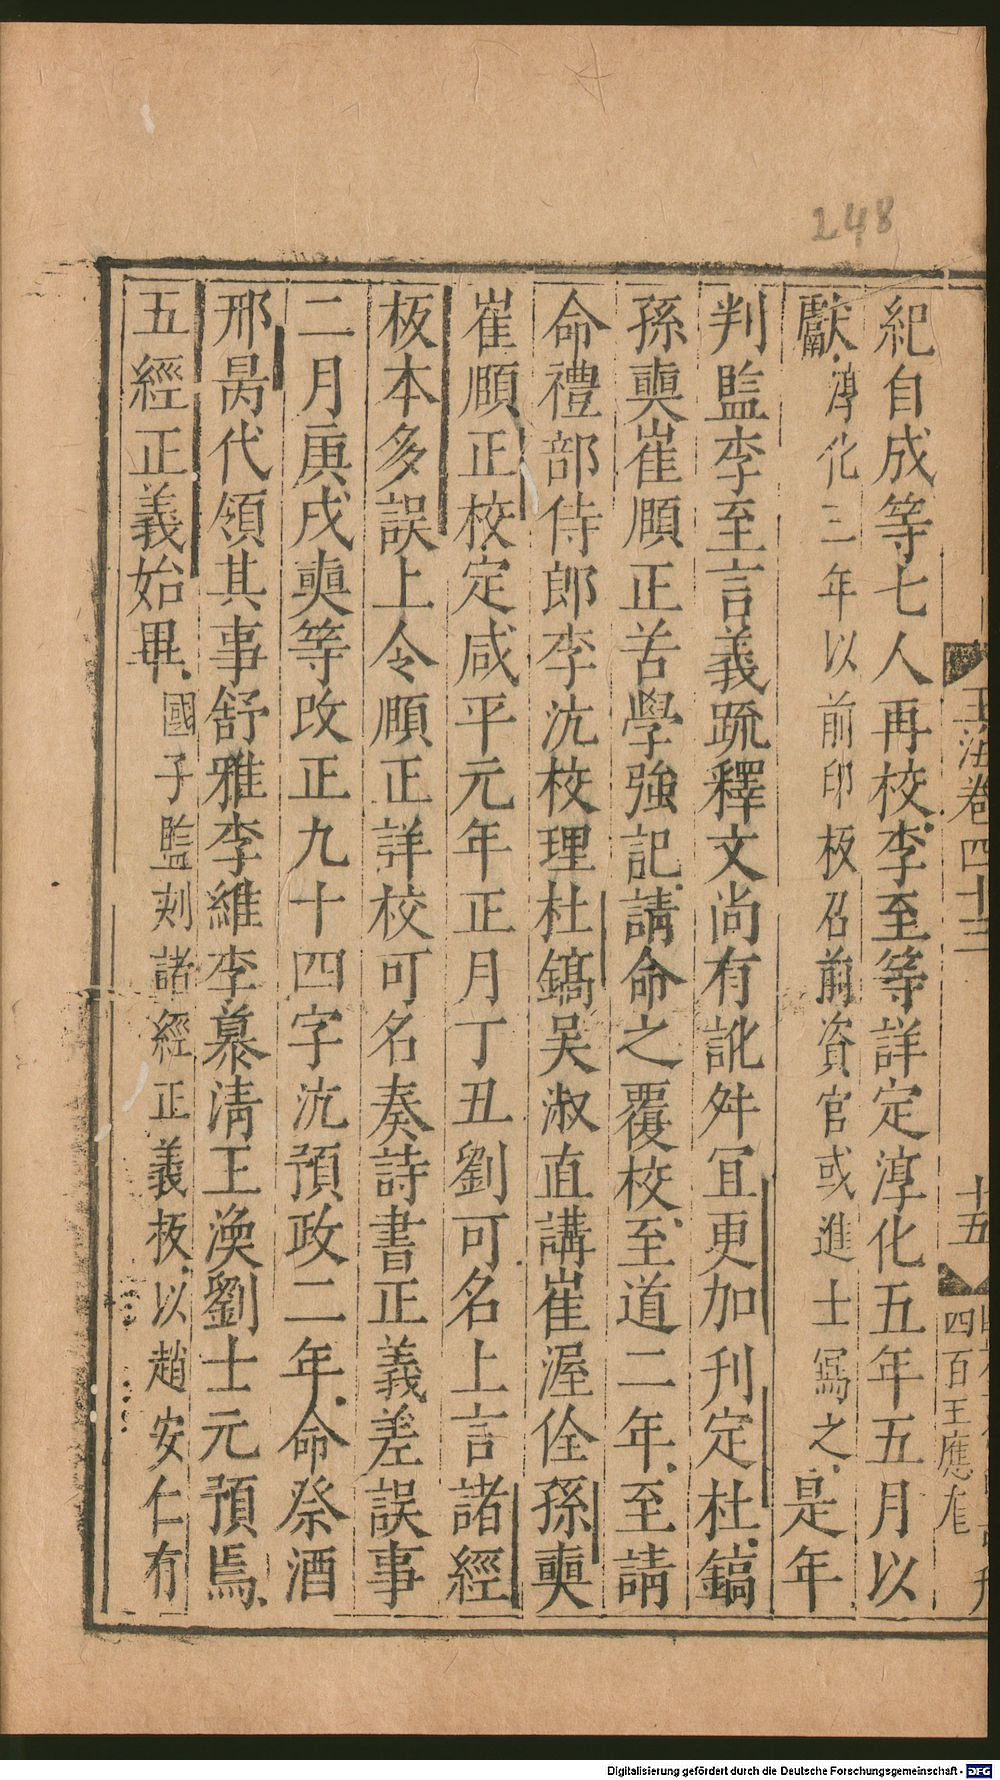 248
玉海卷四十三
十五
四百王應
紀自成等七人再校李至等詳定淳化五年五月以
獻淳化三年以前印板召前資官或進士寫之是年
判監李至言義疏釋文尚有訛舛冝更加刋定杜鎬
孫奭崔頤正苦學強記請命之覆校至道二年至請
命禮部侍郎李沆校理杜鎬吴淑直講崔渥佺孫奭
崔頤正校定咸平元年正月丁丑劉可名上言諸經
板本多誤上令頤正詳校可名奏詩書正義差誤事
二月庚戌奭等改正九十四字沆預政二年命祭酒
邢昺代領其事舒雅李維李慕清王渙劉士元預焉
五經正義始畢國子監刻諸經正義板以趙安仁有
Digitalisierung gefördert durch die Deutsche Forschungsgemeinschaft - DFG